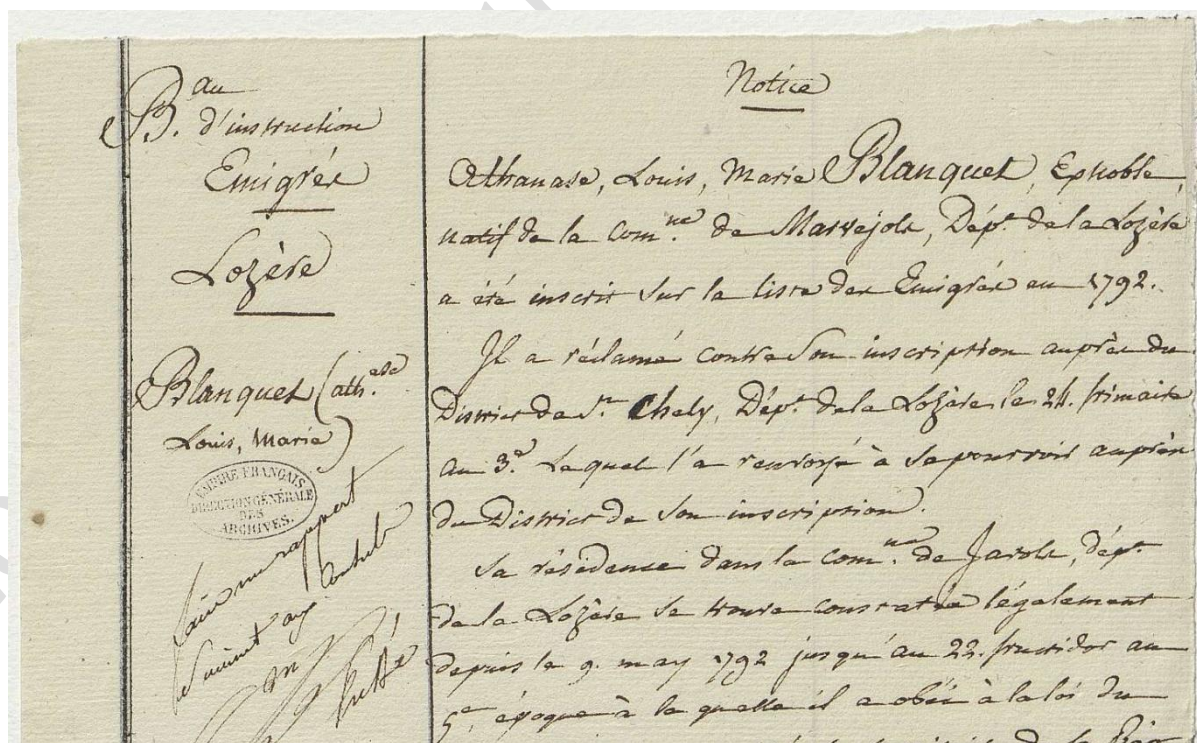 B.au d'instruction
Emigrés
Lozère
Blanquet (ath.ase
Louis, Marie)
EMPIRE FRANÇAIS
DIRECTION GÉNÉRALE
DES
ARCHIVES.
faire un rapport
Notice
Athanase, Louis, Marie Blanquet, Exnoble,
natif de la Com.ne de Marvejols, Dép.t de la Lozère
a été inscrit sur la liste des Emigrés en 1792.
Il a réclamé contre son inscription auprès du
District de S.t Chely, Dép.t de la Lozère le 24. frimaire
an 3.e lequel l'a renvoyé à se pourvoir auprès
du District de son inscription.
Sa résidence dans la Com.ne de Javols, dép.t
de la Lozère se trouve constatée légalement
depuis le 9. may 1792 jusqu'au 22. fructidor an
5.e époque à la quelle il a obéi à la loi du